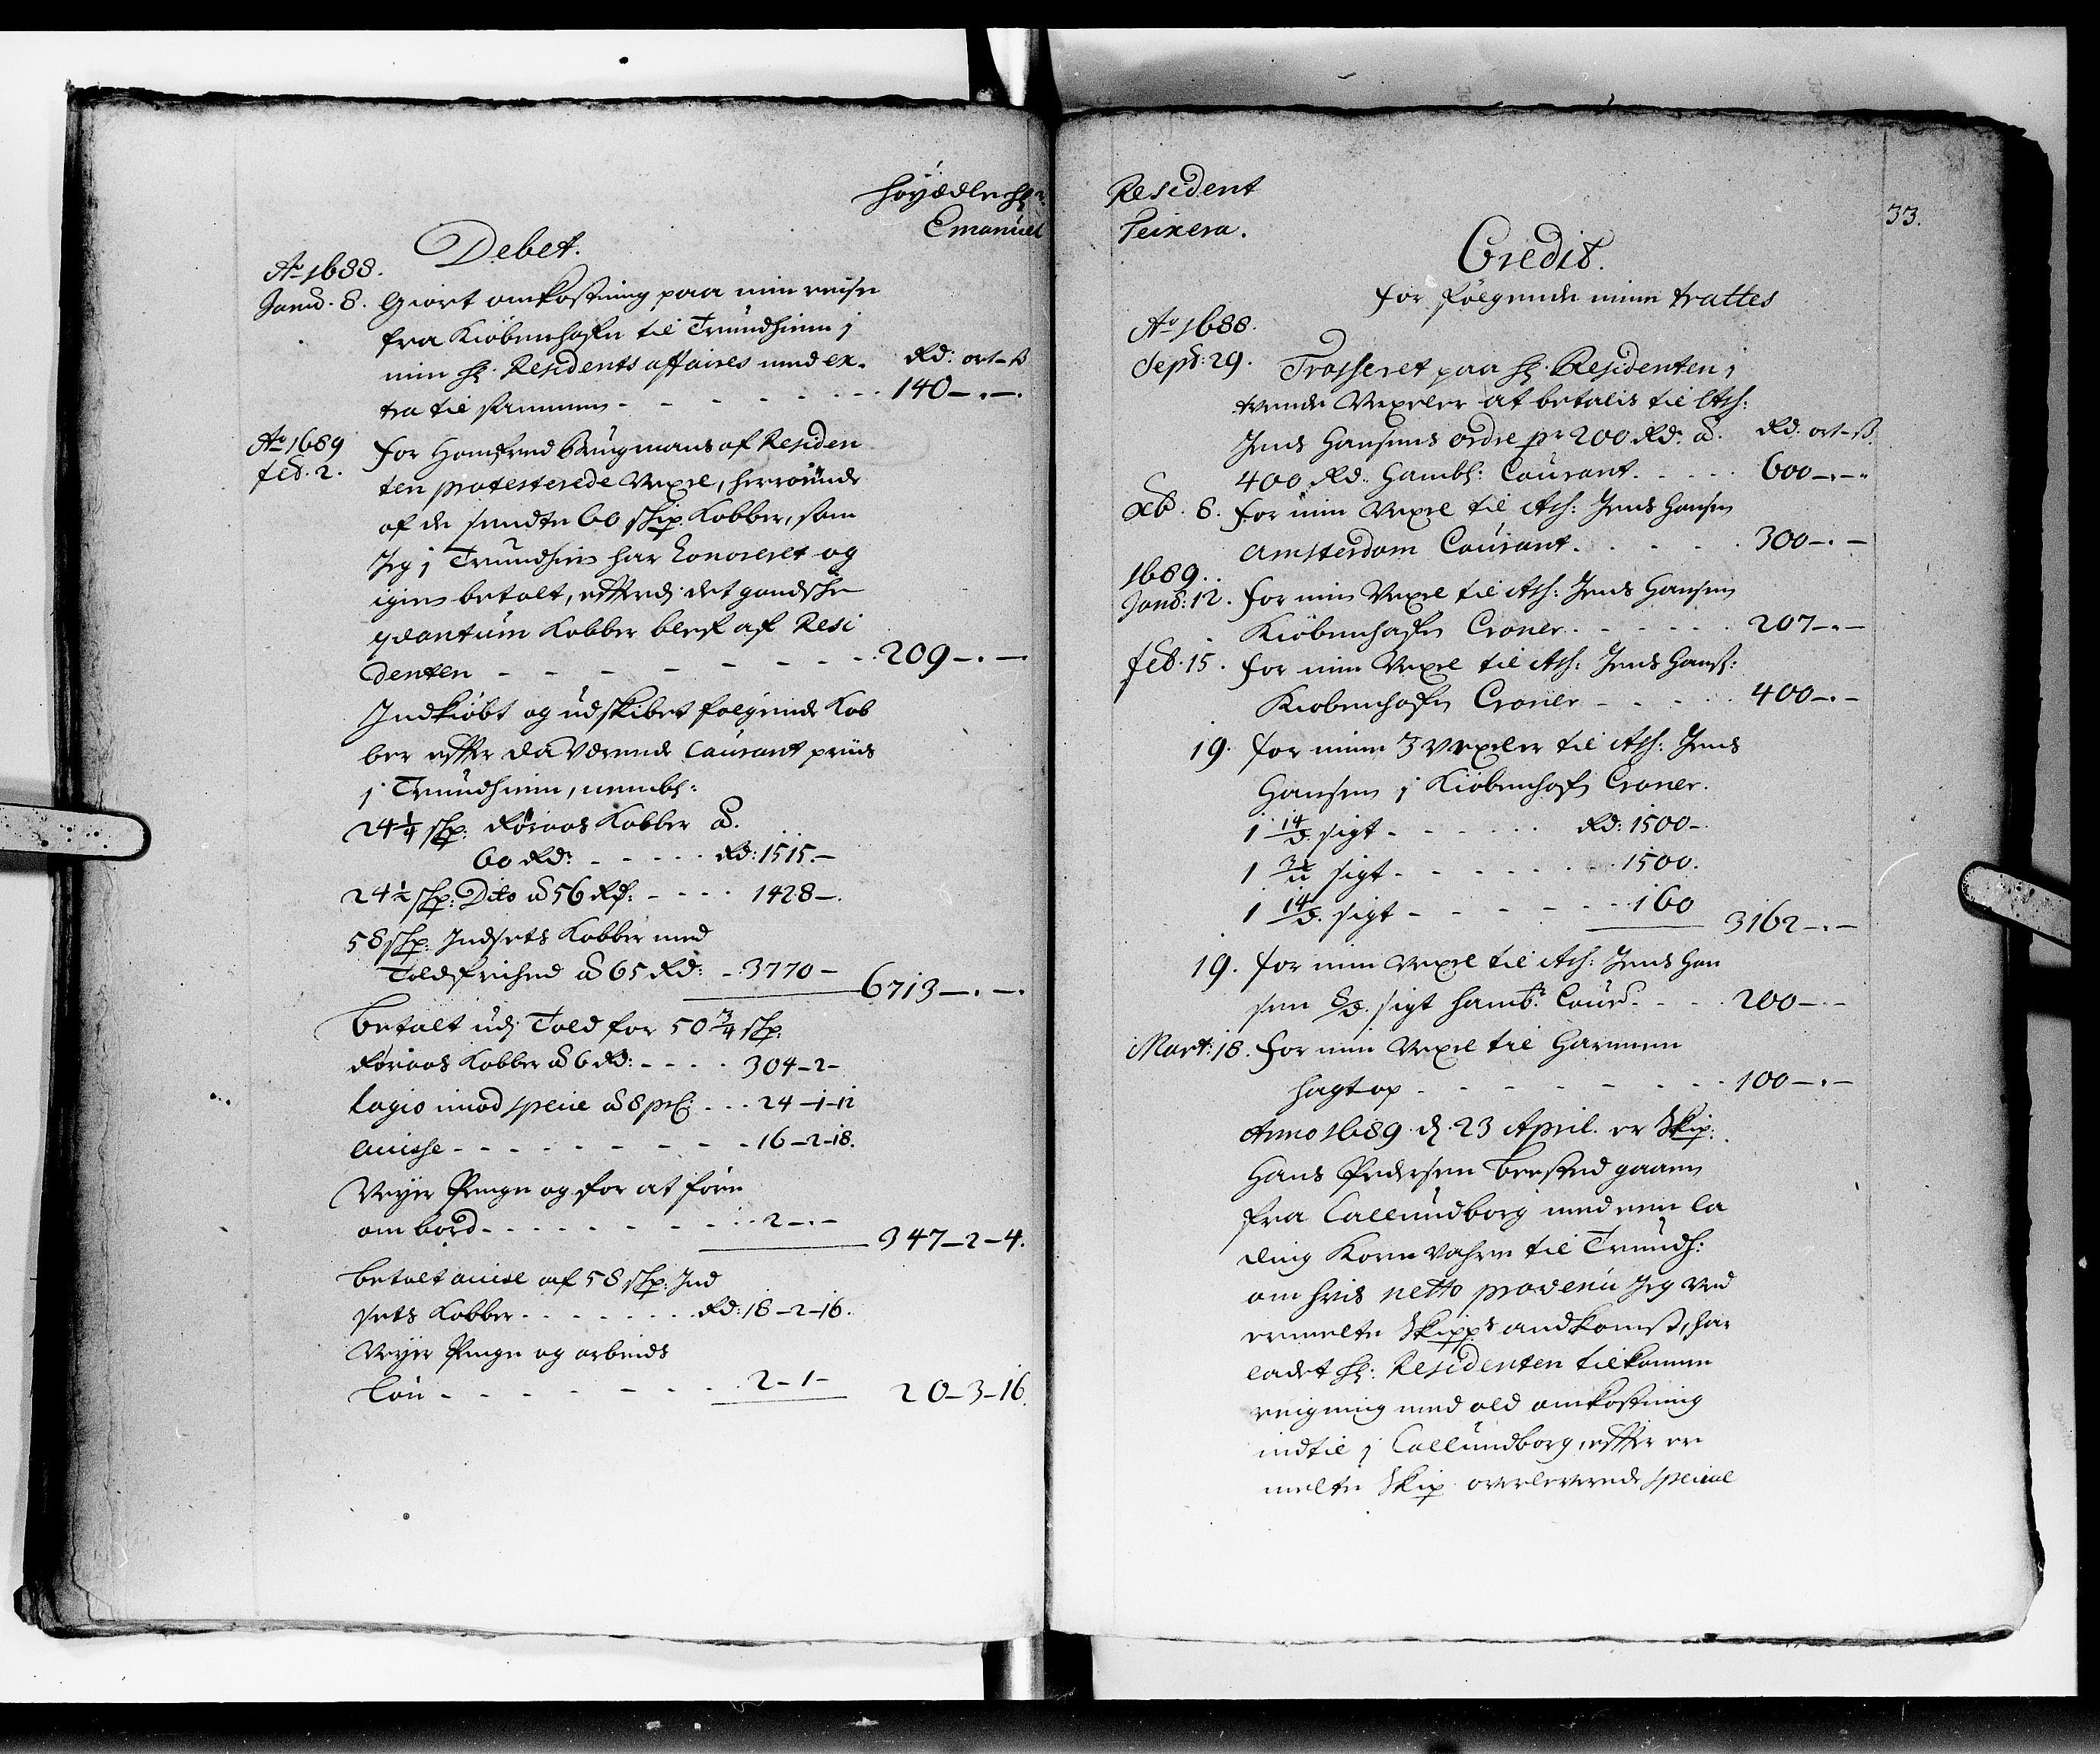 Høyædle Hr.
Emanuel
Debet.
Ao 1688.
Janu. 8. Giort omkostning paa min reise
fra Kiøbenhafn til Trundhiem j
min Hr. Residents affaires med ex-
Rd: ort-ß
tra til sammen - - - - - - - 140-.-.
Ao 1689
feb. 2. for Homfred Brugmans af Residen
ten protesterede Vexel, herrørende
af de sendte 60 skip. Kobber, som
Jeg j Trundhiem har honoreret og
igien betalt, efftersom det gandske
qvantum Kobber blef af Resi
denten - - - - - - - 209-.-
Indkiøbt og udskibet følgende Kob
ber effter da værende Courant priis
j Trundhiem, nembl:
24¼ skp: Røraas Kobber à.
60 Rd: - - - - - Rd: 1515.-
24½ skp: Dito à 56 Rd: - - - - 1428-.
58 skp: Indsets Kobber med
Toldfrihed à 65 Rd: - 3770-
6713-.-.
Betalt udj Told for 50¾ skp:
Røraas Kobber à 6 Rd: - - - - 304-2-
lagio imod specie à 8 prC: - - - 24-1-12
accisse - - - - - - - - - 16-2-18.
Veyer Penge og for at føre
om bord - - - - - - - - - 2-.-
347-2-4.
Betalt accise af 58 skp: Ind
sets Kobber - - - - - - - Rd: 18-2-16.
Veyer Penge og arbeids
løn - - - - - - - - 2-1-
20-3-16.
Resident
Teixera.
33.
Credit.
for følgende mine trattes
Ao 1688.
Sept: 29. Trasseret paa Hr. Residenten j
tvende Vexeler at betalis til Ass:
Jens Hansens ordre pr 200 Rd: à.
Rd: ort-ß.
400 Rd: Hambl: Courant. - - - 600-.-.
Xb. 8. for min Vexel til Ass: Jens Hansen
Amsterdam Courant. - - - - - 300-.-
1689.
Jan: 12. for min Vexel til Ass: Jens Hansen
Kiøbenhafn Croner. - - - - - 207-.-
feb. 15. for min Vexel til Ass: Jens Hans:
Kiøbenhafn Croner - - - - - 400-.-
19. for mine 3 Vexeler til Ass: Jens
Hansen j Kiøbenhafn Croner.
1 14/d. sigt - - - - - - Rd: 1500-.
1 3/u sigt - - - - - - - 1500.
1 14/d. sigt - - - - - - 160
3162-.-
19. for min Vexel til Ass: Jens Han
sen 8/d. sigt Hamb: Cour. - - - 200-.-
Mart: 18. for min Vexel til Harmen
Hagtop - - - - - - - - 100-.-
Anno 1689 d. 23 April. er Skip:
Hans Pedersen Beested gaaen
fra Callundborg med een la
ding Korn Vahre til Trundh:
om hvis netto provenu Jeg ved
ermelte Skipps andkomst, har
ladet Hr: Residenten tilkomme
reigning med ald omkostning
indtil j Callundborg, effter er
melte Skip overleverede special